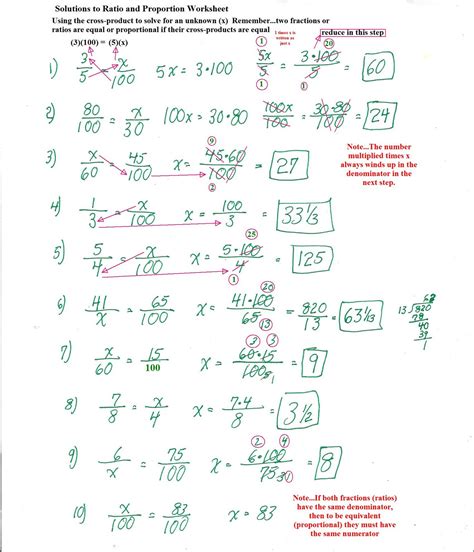 Solutions to Ratio and Proportion Worksheet
Using the cross-product to solve for an unknown (x) Remember...two fractions or
ratios are equal or proportional if their cross-products are equal
1 times x is
written as
just x
reduce in this step
(3)(100) = (5)(x)
1) 3/5 = x/100 5x = 3·100 5x/5 = 3·100/5 = 60
1 20
1 1
2) 80/100 = x/30 100x = 30·80 100x/100 = 30·80/100 = 24
Note...The number
multiplied times x
always winds up in the
denominator in the
next step.
3) x/60 = 45/100 x = 45·60/100 = 27
9
2
4) 1/3 = x/100 x = 100/3 = 33 1/3
5) 5/4 = x/100 x = 5·100/4 = 125
25
1
6) 41/x = 65/100 x = 41·100/65 = 820/13 = 63 1/13
20
13
7) x/60 = 15/100 x = 60·15/100 = 9
3 3
8) 7/8 = x/4 x = 7·4/8 = 3 1/2
9) 6/x = 75/100 x = 6·100/75 = 8
2 4
10) x/100 = 83/100 x = 83
Note...If both fractions (ratios)
have the same denominator,
then to be equivalent
(proportional) they must have
the same numerator